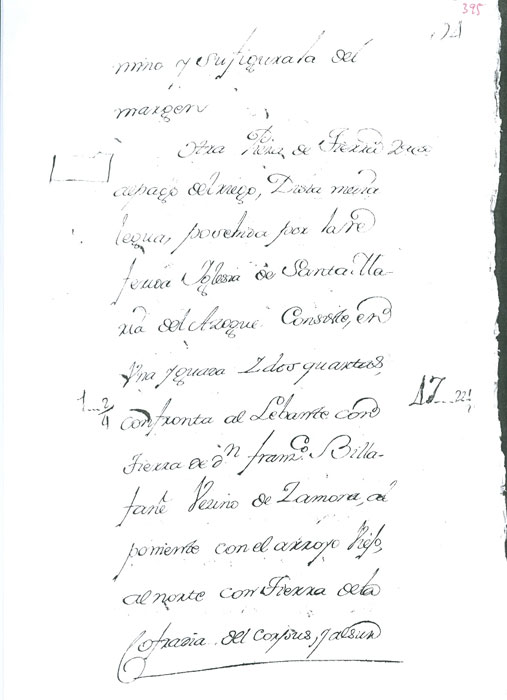 395
mino y su figura la del
margen
Otra Pieza de Tierra
al pago del Dista media
legua, poschida por la re
ferida Yglesia de Santa Ma-
ria del Azogue. Consiste, en
Una Yguada I dos quartas,
1...2/4
17...221
confronta al Lebante con
Tierra de dn. Franco. Billa-
fañe Vezino de Zamora, al
poniente con el arroyo
al norte con Tierra de la
Cofradia del Corpus, y al sur